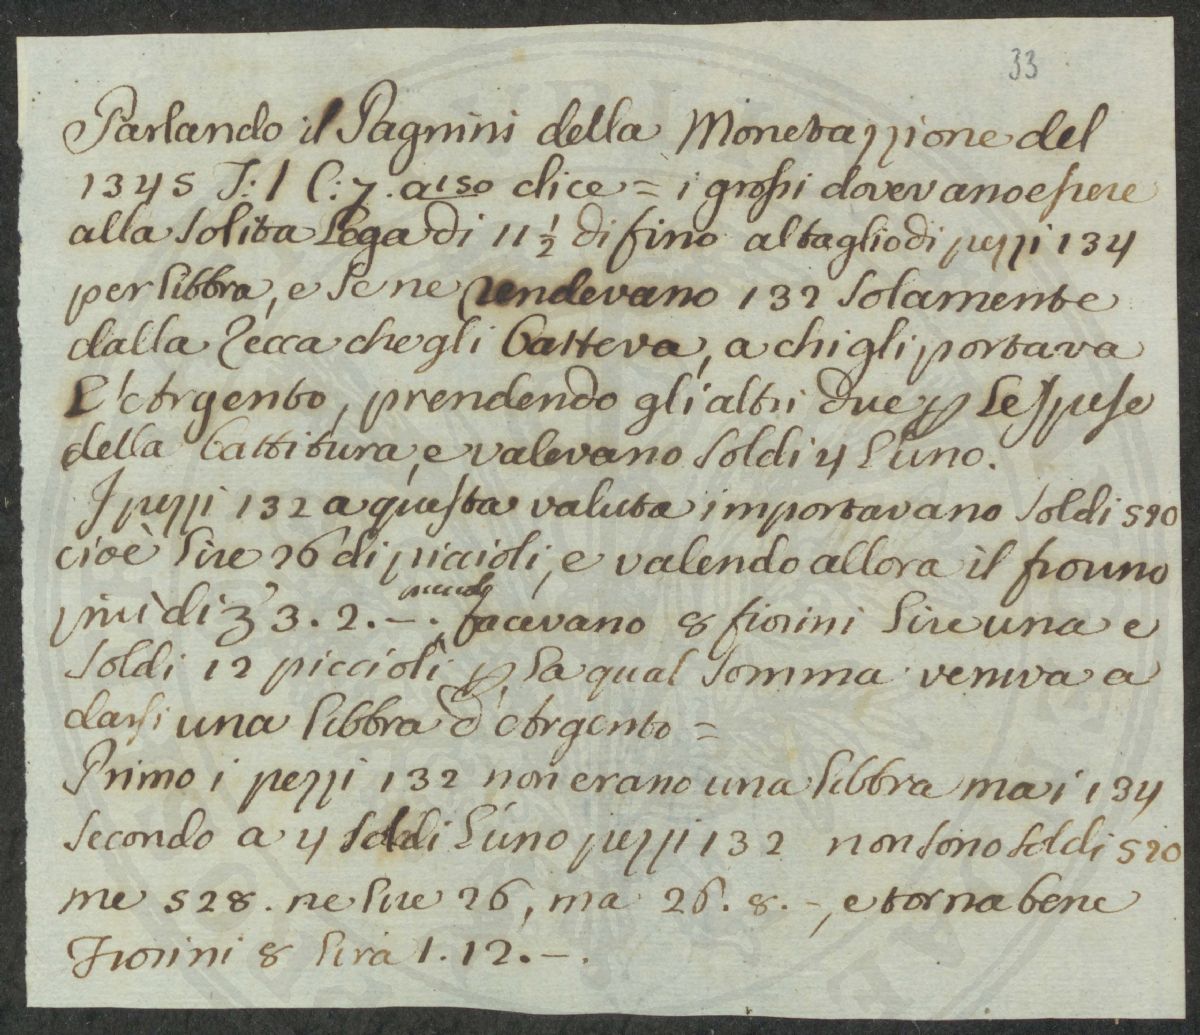 33
Parlando il Pagnini della Monetazzione del
1345 T: 1 C: 7. dice = i grossi dovevano essere
alla solita Lega di 11 1/2 di fino al taglio di pezzi 134
per libbra, e se ne rendevano 132 solamente
dalla Zecca che gli batteva, a chi gli portava
L'Argento, prendendo gli altri due p le spese
della battitura, e valevano soldi 4 l'uno.
I pezzi 132 a questa valuta importavano soldi 520
cioè lire 26 di piccioli, e valendo allora il fiorino
più di 3. 2. –. piccoli facevano 8 fiorini lire una e
soldi 12 piccioli, p la qual somma veniva a
darsi una libbra d'Argento =
Primo i pezzi 132 non erano una libbra ma i 134
secondo a 4 soldi l'uno pezzi 132 non sono soldi 520
me 528. ne lire 26, ma 26. 8. –, e torna bene
Fiorini 8 lira 1. 12. –.